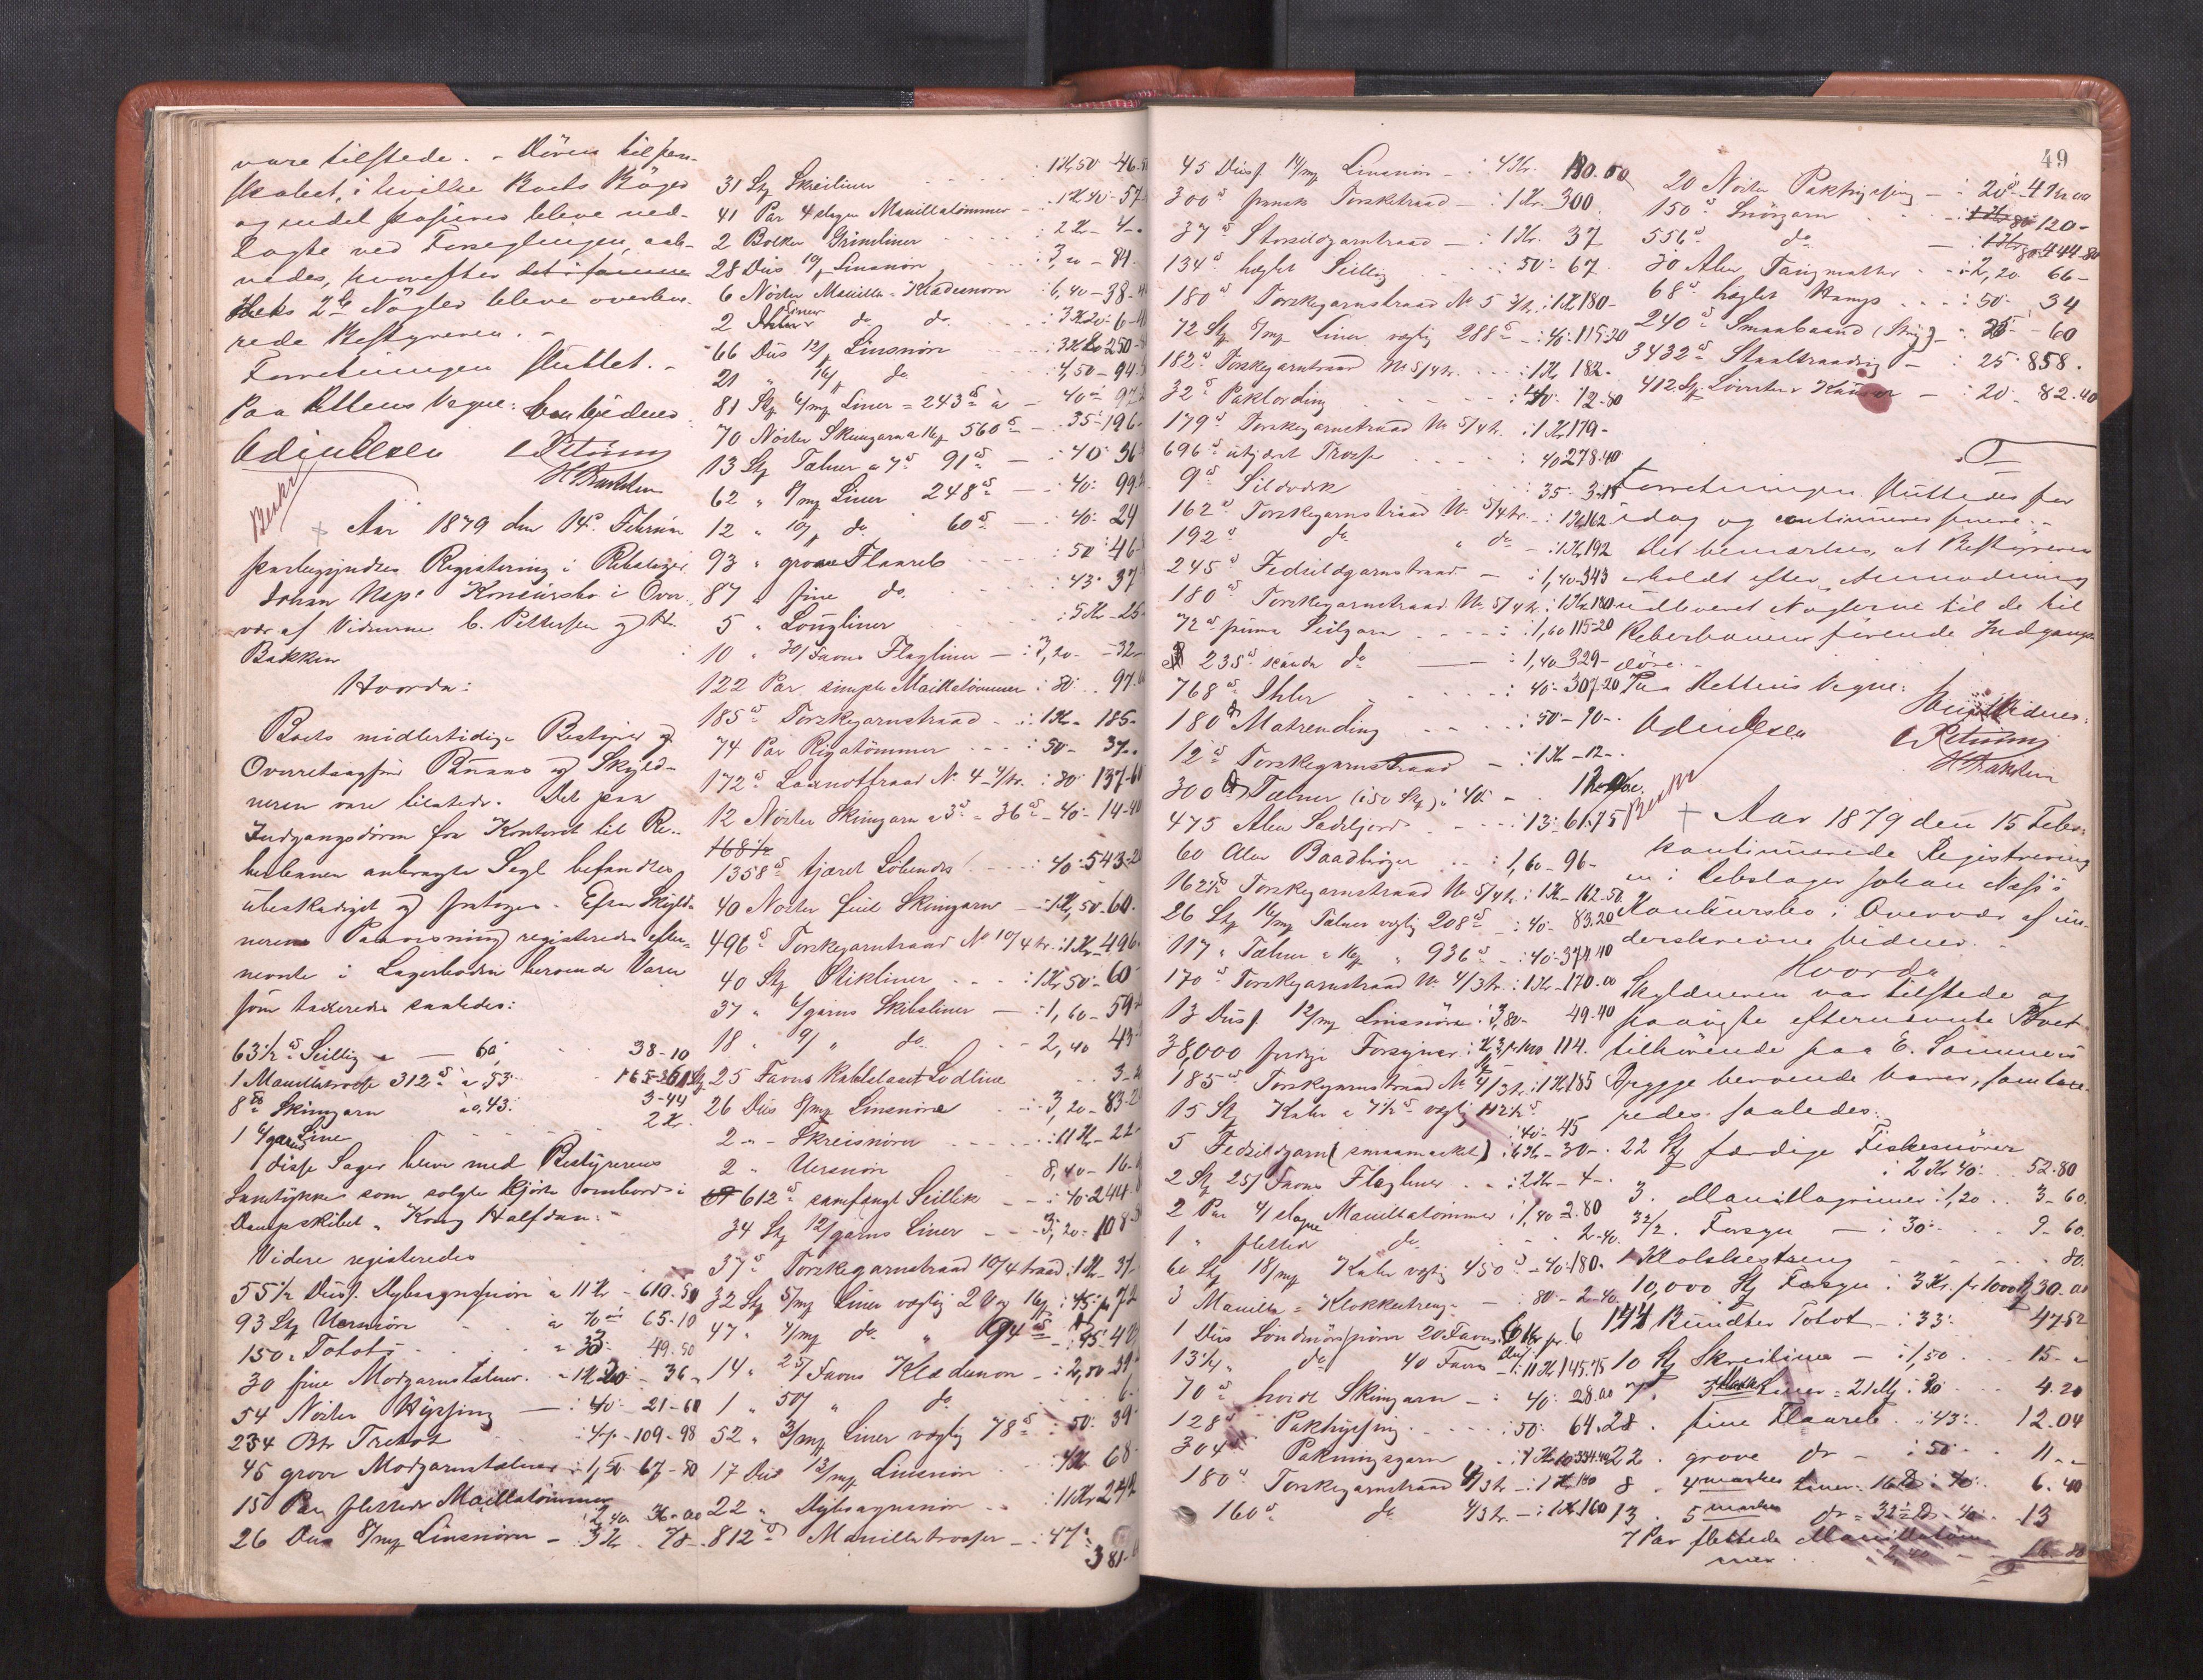 vare tilstede. - Dören til pen-
skabet, i hvilke Boets Böger
og endel Papirer bleve ned-
lagte ved Forseglingen, aab-
nedes, hvorefter det i samme
2de Nögler bleve overleve-
rede Bestyreren. -
Forretningen sluttet. -
Paa Rettens Vegne:
Aar 1879 den 14de Februar
paabegyndtes Registrering i Rebslager
Johan Næss' Konkursbo i Over-
vær af Vidnerne C. Pettersen og H.
Bakken
Hvorda:
Boets midlertidige Bestyrer
Overretssagfører og Skyld-
neren vare tilstede. Det paa
Indgangsdören fra Kontoret til Re-
berbanen anbragte Segl befandtes
ubeskadiget og fratoges. Efter Skyld-
nerens Paavisning registeredes efter-
nevnte i Lagerboden beroende Varer
som taxeredes saaledes:
63 1/2 Seilg - 60 38-10
1 Manillatrosse 312 a 53 165-36
8 Skimgarn a 0,43 3-44
1 garns Line 2 Kr
disse Sager bleve med Bestyrerens
Samtykke som solgte kjörte ombord i
Dampskibet "Kong Halfdan."
Videre registeredes
55 1/2 Dus. Dybsagnssnöre a 11 Kr - 610.50
93 Stk Uersnöre a 70 65-10
150 Totots 33 49.50
30 fine Modgarnstælner 1 Kr 20 - 36
54 Nöster Hyssing 40 - 21-60
234 Bt Tretot 47 - 109-98
45 grove Modgarnstælner 1,50 67-50
15 Par flettede Manillatömmer 2,40 36-00
26 Dus 8/mg Linsnören - 3 Kr 78
31 Stk Skreiliner 1 Kr 50 - 46.50
41 Par 4 slagen Manillatömmer 1 Kr 40 - 57
2 Bolker Grimeliner 2 Kr - 4
28 Dus Linsnöre 3,
6 Nöster Manilla-Klædesnore 6,40 - 38
2 Liner do do 3 Kr 20 - 6
66 Dus 12/ Linsnöre 250
21 " 16/ do 4,50 - 94.5
81 Stk 6/mg Liner = 243 a 40 97
70 Nöster Skimgarn 560 35 - 196
13 Stk Tælner a 7 91 40 36
62 " 8/mg Liner 248 40 99
12 " 10/ do 60 40 24
93 " grove Flaareb 50 46
87 " fine do 43 37
5 " Longliner 5 Kr - 25
10 " 30/Favns Flagliner 3,20 - 32
122 Par simple Manillatömmer 80 97
185 Torskegarnstraad 1 Kr 185
74 Par Rigatömmer 50 - 37
172 Laxnotstraad No 4 80 137-6
12 Nöster Skimgarn a 3 = 36 - 40 - 14-40
1358 tjæret 40 543-20
40 Nöster fiin Skimgarn 1 Kr 50 - 60
496 Torskegarntraad No 10/4 tr. 1 Kr 496
40 Stk Stikliner 1 Kr 50 - 60
37 " 6/garns Skibsliner 1,60 - 59
18 " 9/ " do 2,40 43
25 Favne Kabelslaaet Lodline 3
26 Dus 8/mg Linsnöre 3,20 - 83
2 " Skreisnörer 11 Kr - 22
2 " Uersnöre 8,40 - 16
612 samfangt Seillik 40 244
34 Stk 12/garns Liner 3,20 108
37 Torskegarnstraad 10/4 traad 1 Kr - 37
32 Stk 5/mg Liner vægtig 2 Vog 16 45 72
47 " 4/mg do " 94 45 42
14 " 25/ Favns Klædesnore 2,80 39
1 " 50/ " do 6
52 " 3/mg Liner vægtig 78 50 39
17 Dus 13/mg Linsnöre 4 Kr 68
22 " Dybsagnssnöre 11 Kr 242
812 Manillatrosser 47 381
49
45 Dus. 14/mg Linsnöre - 4 Kr. 180.00
300 fransk Torsketraad 1 Kr. 300
37 Storsildgarntraad 1 Kr. 37
134 heglet Seilg 50 67
180 Torskegarnstraad No 5 1 Kr 180
72 Stk 8/mg Liner vægtig 288 40 115.20
182 Torskegarntraad No 5/4 tr. 1 Kr 182
32 Paklording 40 12-80
179 Torskegarnstraad No 5/4 tr. 1 Kr 179
696 utjæret Trosse 40 278.40
9 Sildvok 35 3.15
162 Torskegarnstraad No 5/4 tr. 1 Kr 162
192 do " do 1 Kr 192
245 Fedsildgarnstraad 1,40 343
180 Torskegarnstraad No 5/4 tr. 1 Kr 180
72 prima Seilgarn 1,60 115-20
235 secunda do 1,40 329
768 Ihler 40 307.20
180 Matrending 50 - 90
12 Torskegarnstraad 1 Kr - 12
300 Tælner (i 50 Stk) 40 120.00
475 Alen Sadelgjord 13 61.75
60 Alen Baadtröger 1,60 - 96
162 1/2 Torskegarnstraad No 5/4 tr. 1 Kr - 162.50
26 Stk 16/mg Tælner vægtig 208 40 83.20
117 " Tælner a " 936 40 374.40
170 Torskegarnstraad No 4/3 tr. 1 Kr - 170.00
13 Dus. 12/mg Linsnöre 3,80 49.40
38,000 færdige Forsyner 3 pr 1000 114.
185 Torskegarnstraad No 4/3 tr. 1 Kr 185
15 Stk Kabler a 7 1/2 vægtig 112 1/2 40 - 45
5 Fedsildgarn (smaamasket) 6 Kr - 30
2 Stk 25/ Favns Flagliner 2 Kr - 4
2 Par 4/slagne Manillatömmer 1,40 2.80
1 " flettet do 2.40
60 Stk 18/mg Kabler vægtig 450 40 180.
3 Manilla = Klokkestrenge 80 - 2.40
1 Dus Söndmörssnöre 20 Favne 6 Kr pr. 6
13 1/4 " do 40 Favne 11 Kr 145.75
70 hvidt Skimgarn 40 28.00
128 Pakhyssing 50 64.
304 Pakningsgarn 334.40
180 Torskegarnstraad 4/3 tr. 1 Kr 180
160 do 4/3 tr. - 1 Kr 160
20 Nöster Pakhyssing 20 4 Kr 00
150 Snörgarn 80 120-
556 do 80 444.80
30 Alen Tangmatter 2,20 66-
68 heglet Hamp 50 34
240 Smaabaand (Stry) 25 - 60
3432 Staaltraadrig 25 858.
412 Stk Löverter Kauser 20 82.40
Forretningen sluttedes for
idag og continueres senere. -
Det bemærkes, at Bestyreren
erholdt efter Anmodning
udleveret Nöglerne til de til
Reberbanen förende Indgangs-
döre. -
Paa Rettens Vegne:
Aar 1879 den 15 Febr.
kontinuerede Registrering
en i Rebslager Johan Næss's
Konkursbo i Overvær af un-
derskrevne Vidner. -
Hvorda
Skyldneren var tilstede og
paaviste efternevnte Boet
tilhörende paa E. Sommers
Brygge beroende Varer, som taxe-
redes saaledes:
22 Stk færdige Fiskesnörer
2 Kr 40 52.80
3. Manillagrimer 1,20 3-60
32/2. Forsyn 30 9-60
1 Klokkestreng 80
10,000 Stk Forsyn 3 Kr. pr 1000 30.00
144 Bundter Totot 33 47.52
10 Stk Skreiliner 1,50 15
7. Liner = 21 4.20
28. fine Flaareb 43 12.04
22. grove do 50 11
8. 4 marker Liner 16 40 6.40
13. 5 marker do = 32 1/2 40 13
7 Par flettede Manillatöm-
mer 2,40 16-80